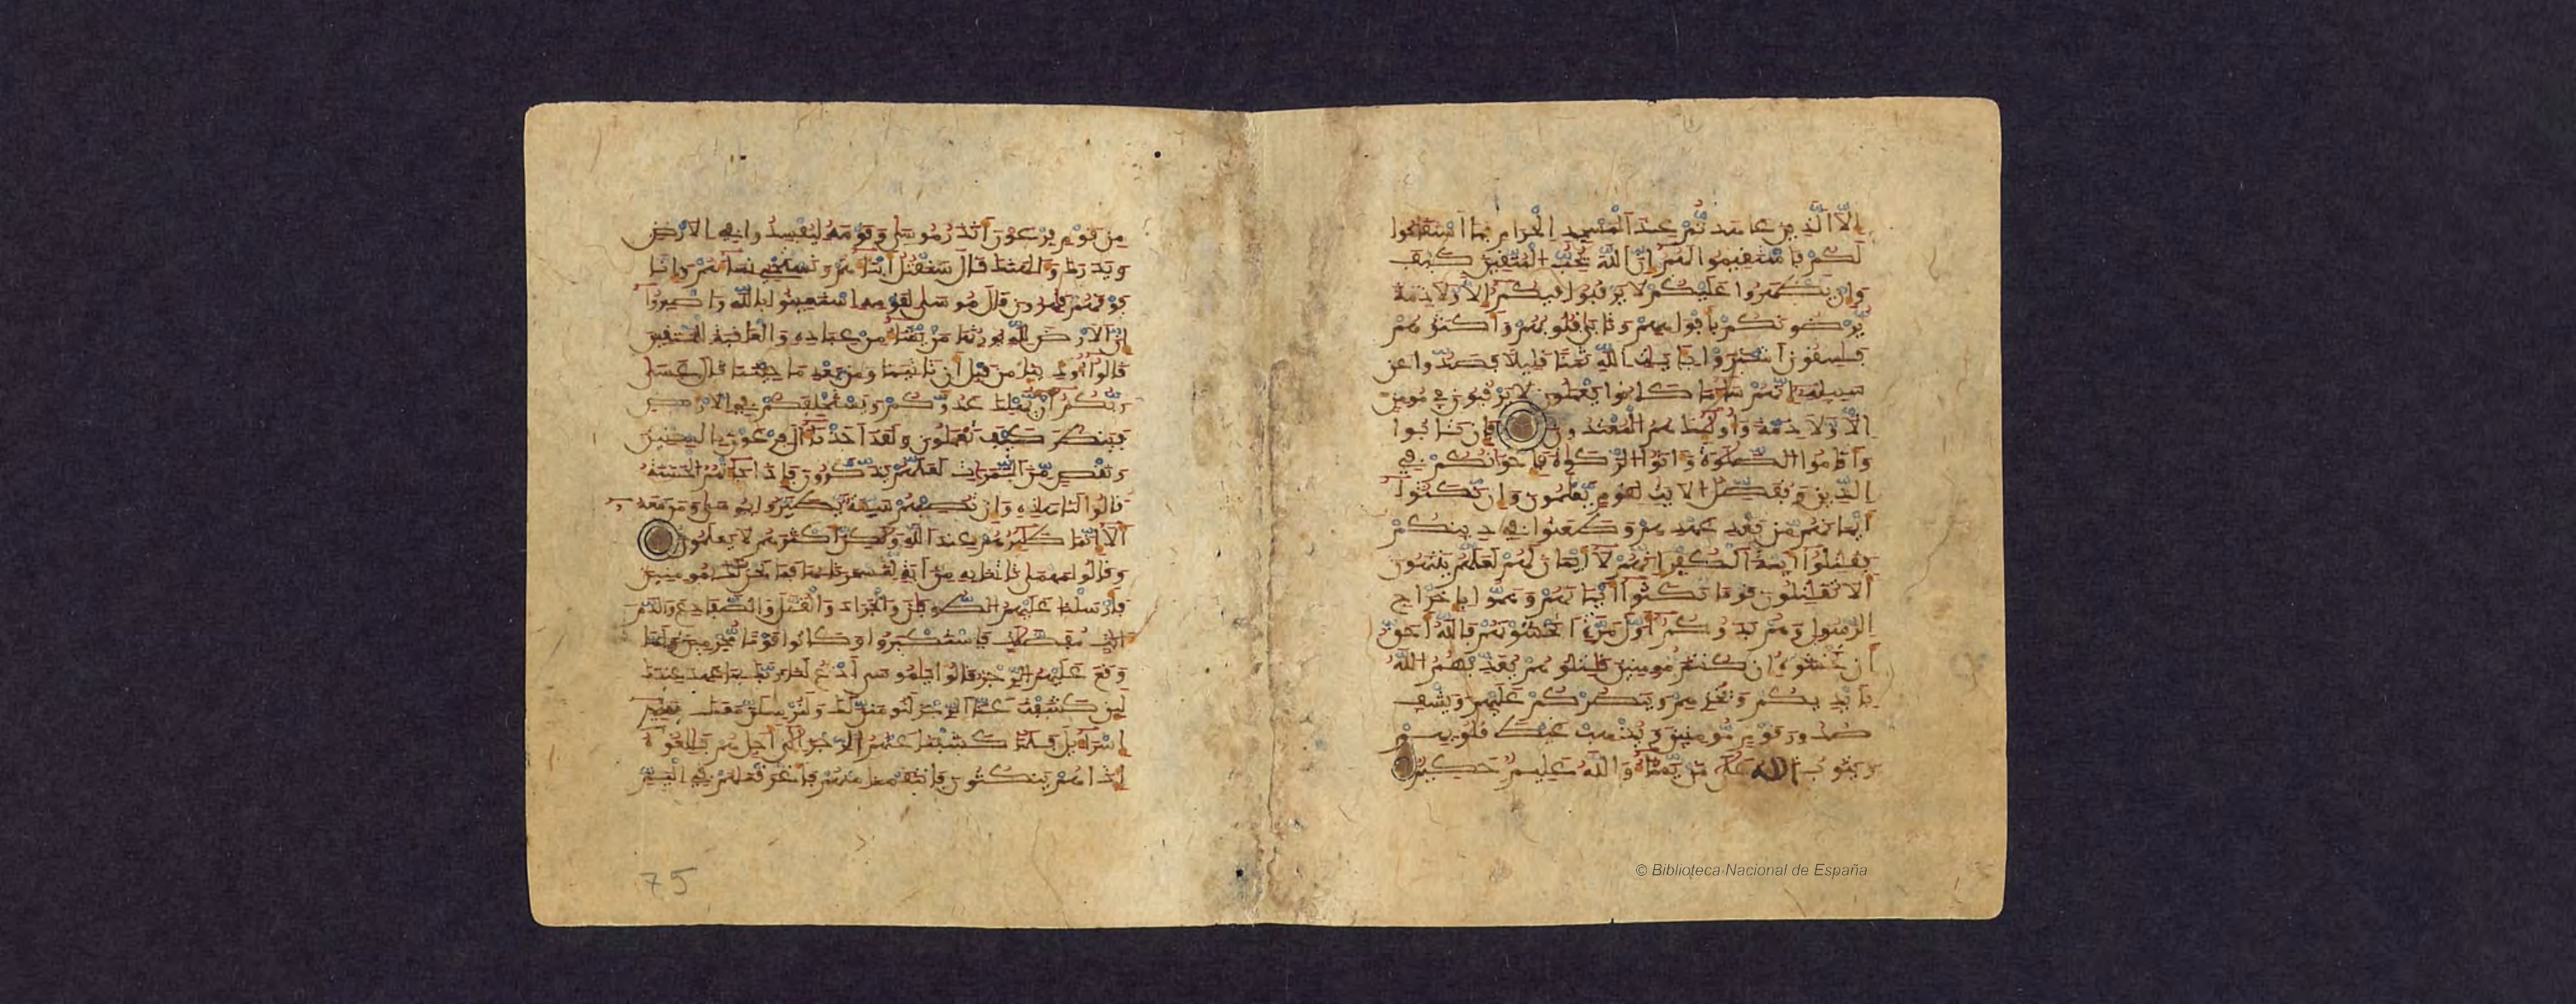 إلا الذين عاهدتم عند المسجد الحرام فما استقاموا
لكم فاستقيموا لهم إن الله يحب المتقين كيف
وإن يظهروا عليكم لا يرقبوا فيكم إلا ولا ذمة
يرضونكم بأفواههم وتابى قلوبهم وأكثرهم
فسقون اشتروا بايت الله ثمنا قليلا فصدوا عن
سبيله إنهم ساء ما كانوا يعملون لا يرقبون في مومن
إلا ولا ذمة وأوليك هم المعتدون فإن تابوا
وأقاموا الصلوة وءاتوا الزكوة فإخوانكم في
الدين ونفصل الايت لقوم يعلمون وإن نكثوا
أيمانهم من بعد عهدهم وطعنوا في دينكم
فقتلوا أيمة الكفر إنهم لا أيمان لهم لعلهم ينتهون
ألا تقتلون قوما نكثوا أيمانهم وهموا بإخراج
الرسول وهم بدءوكم أول مرة أتخشونهم فالله أحق
أن تخشوه إن كنتم مومنين قتلوهم يعذبهم الله
بأيديكم ويخزهم وينصركم عليهم ويشف
صدور قوم مومنين ويذهب غيظ قلوبهم
ويتوب الله على من يشاء والله عليم حكيم
من قوم فرعون أتذر موسى وقومه ليفسدوا في الارض
ويذرك وءالهتك قال سنقتل أبناءهم ونستحي نساءهم وإنا
فوقهم قهرون قال موسى لقومه استعينوا بالله واصبروا
إن الارض لله يورثها من يشاء من عباده والعقبة للمتقين
قالوا أوذينا من قبل أن تاتينا ومن بعد ما جئتنا قال عسى
ربكم أن يهلك عدوكم ويستخلفكم في الارض
فينظر كيف تعملون ولقد أخذنا ءال فرعون بالسنين
ونقص من الثمرات لعلهم يذكرون فإذا جاءتهم الحسنة
قالوا لنا هذه وإن تصبهم سيئة يطيروا بموسى ومن معه
ألا إنما طئرهم عند الله ولكن أكثرهم لا يعلمون
وقالوا مهما تاتنا به من ءاية لتسحرنا بها فما نحن لك بمومنين
فأرسلنا عليهم الطوفان والجراد والقمل والضفادع والدم
ءايت مفصلت فاستكبروا وكانوا قوما مجرمين ولما
وقع عليهم الرجز قالوا يموسى ادع لنا ربك بما عهد عندك
لين كشفت عنا الرجز لنومنن لك ولنرسلن معك بني
إسراءيل فلما كشفنا عنهم الرجز إلى أجل هم بلغوه
إذا هم ينكثون فانتقمنا منهم فأغرقنهم في اليم
75
© Biblioteca Nacional de España